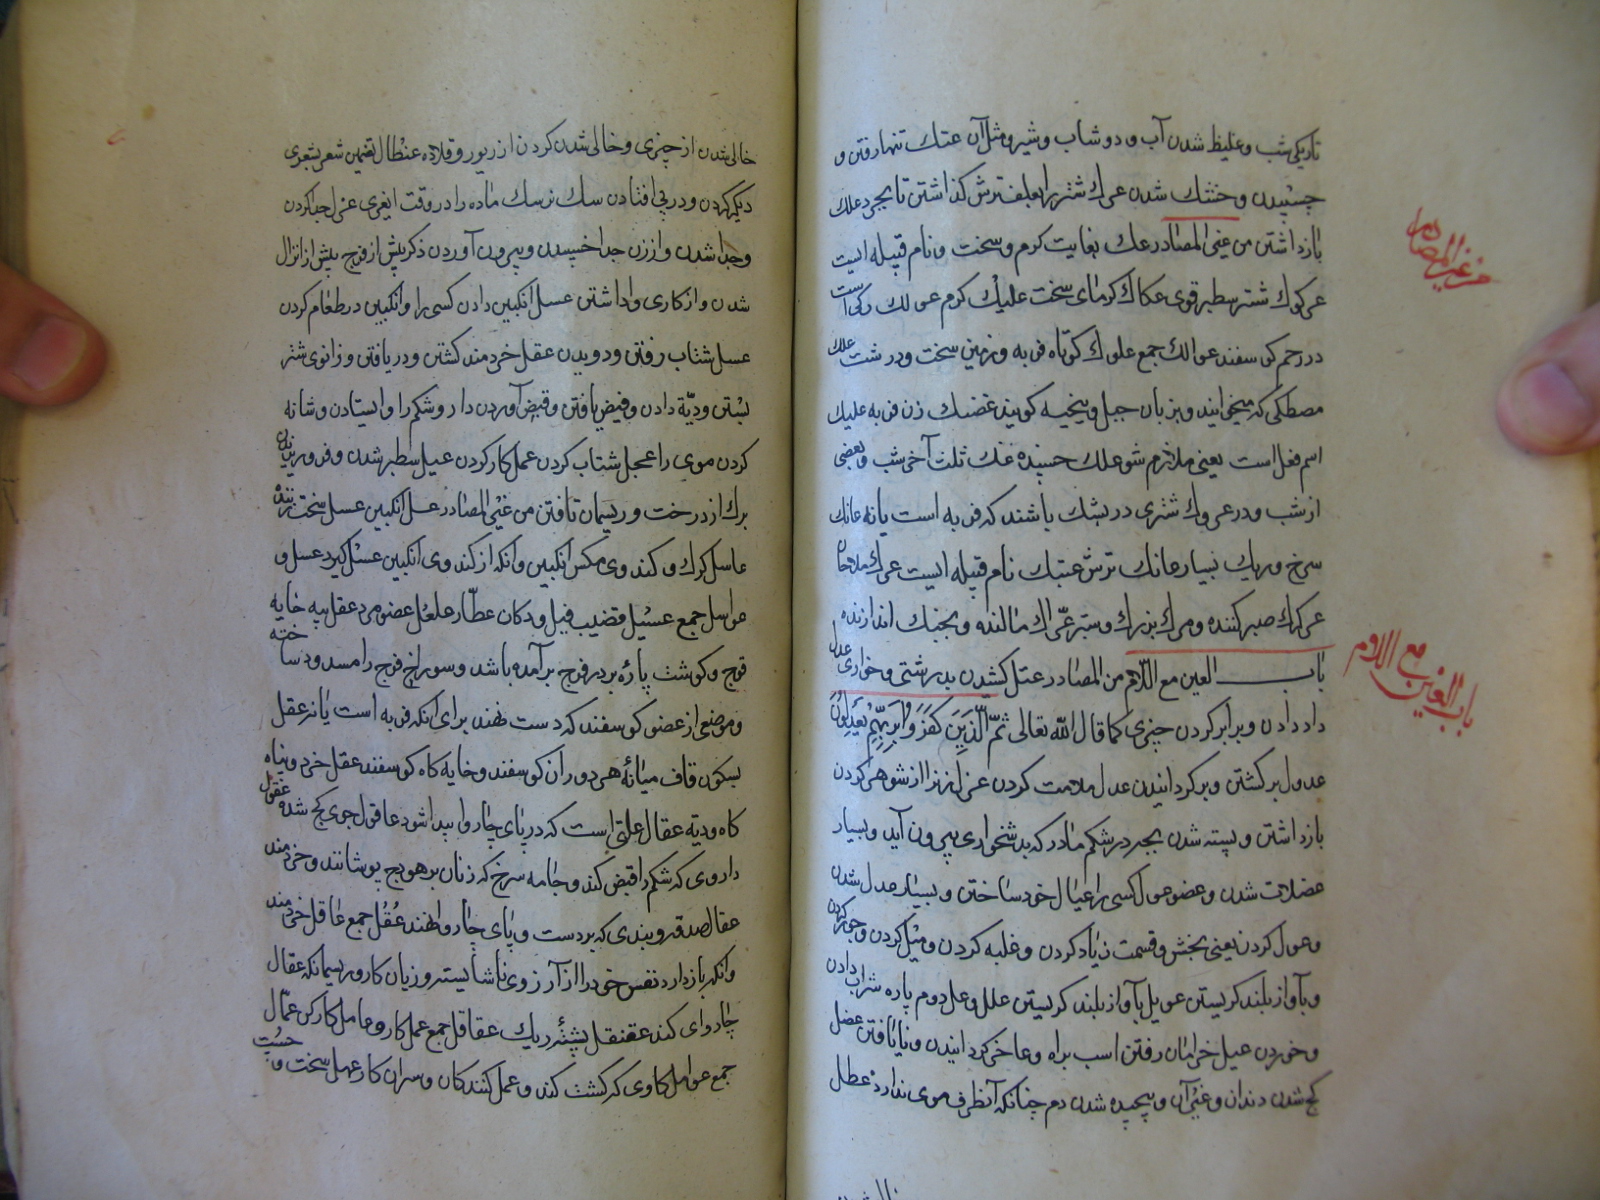 تاریکی شب و غلیظ شدن آب و دوشاب و شیر و مثل آن عتك تنها رفتن و
چسپیدن و خشك شدن عرك شتر را بعلف ترش کذاشتن تا بچرد علك
بازداشتن من غیر المصادر عك بغایت کرم و سخت و نام قبیله ایست
من غیر المصادر
عرکوك شتر سطبر قوی عکاك کرمای سخت علیك کرم عولك رکی است
در رحم کوسفند عوالك جمع علوك کوتاه فربه و زمین سخت و درشت علك
مصطکی که میخوایند و بزبان جبل و میخیه کویند عضنك زن فربه علیك
اسم فعل است یعنی ملازم شو علك چسپیده عنك ثلث آخر شب و بعضی
از شب و در عروك شتری در پشتك باشند که فربه است یا نه عانك
سرخ و ریك بسیار عاتك ترش عتیك نام قبیله ایست عرك ملاحان
عرکرك صبر کننده و مرك بزرك و ستبر عراك مالنده و بجنك اندازنده
باب العین مع اللام من المصادر عتل کشیدن بدرشتی و خواری عدل
باب العین مع اللام
داد دادن و برابر کردن چیزی کما قال الله تعالی ثم الذین کفروا بربهم یعدلون
عدول برکشتن و برکردانیدن عدل ملامت کردن عزل زنرا از شوهر کردن
بازداشتن و بسته شدن بچه در شکم مادر که بدشخواری بیرون آید و بسیار
عضلات شدن و عضو عول کسی را عیال خود ساختن و بسیار عدل شدن
و عول کردن یعنی بخش و قسمت زیاد کردن و غلبه کردن و میل کردن و جور کردن
و بآواز بلند کریستن عویل بآواز بلند کریستن علل و عل دوم باره شراب دادن
و خوردن عیل خرامان رفتن اسب براه و عاخر کردانیدن و نایافتن عضل
کج شدن دندان و غیر آن و پیچیده شدن دم چنانکه آنطرف موی ندارد عطل
خالی شدن از چیزی و خالی شدن کردن از زیور و قلاده عنظال تضمین شعر بشعری
دیکر کردن و در پی افتادن سك نر سك ماده را در وقت ایغری عزل جدا کردن
و جدا شدن و از زن جدا خسپیدن و بیرون آوردن ذکر پیش از فرج پیش از انزال
شدن و از کاری وا داشتن عسل انکبین دادن کسی را و انکبین در طعام کردن
عسل شتاب رفتن و دویدن عقل خردمند کشتن و دریافتن و زانوی شتر
بستن و دیة دادن و فیض یافتن و قبض آوردن دارو شکم را و ایستادن و شانه
کردن موی را عجل شتاب کردن عمل کار کردن عبل سطبر شدن و فرو ریزیدن
برك از درخت و ریسمان تافتن من غیر المصادر عسل انکبین عسل سخت زننده
عاسل کرك و کندوی مکس انکبین و آنکه از کندوی انکبین عسل کیرد عسل و
عواسل جمع عسیل قضیب فیل و دکان عطار علعل عضو مرد عقل پیه خایه
قوچ و کوشت پاره بر در فرج بر آمده باشد و سوراخ فرج را مسدود ساخته
و موضعی از عضو کوسفند که دست نهند برای آنکه فربه است یا نه عقل
بسکون قاف میانهٔ هر دو ران کوسفند و خایه کاه کوسفند عقل خرد و پناه
کاه و دیه عقال علتی است که در پای چاروا پیدا شود عاقول جوی کج شده عقول
داروی که شکم را قبض کند و جامه سرخ که زنان بر هودج پوشانند و خردمند
عقال صدقه و بندی که بر دست و پای چاروا نهند عقل جمع عاقل خردمند
و آنکه باز دارد نفس خود را از آرزوی ناشایسته و زیان کار و ریسمانکه عقال
چاروای کنند عقنقل پشتهٔ ریك عقاقل جمع عمل کار و عامل کارکن عمال
جمع عوامل کاوی که کشت کند و عمل کنندکان و سران کار عهل سخت و چست